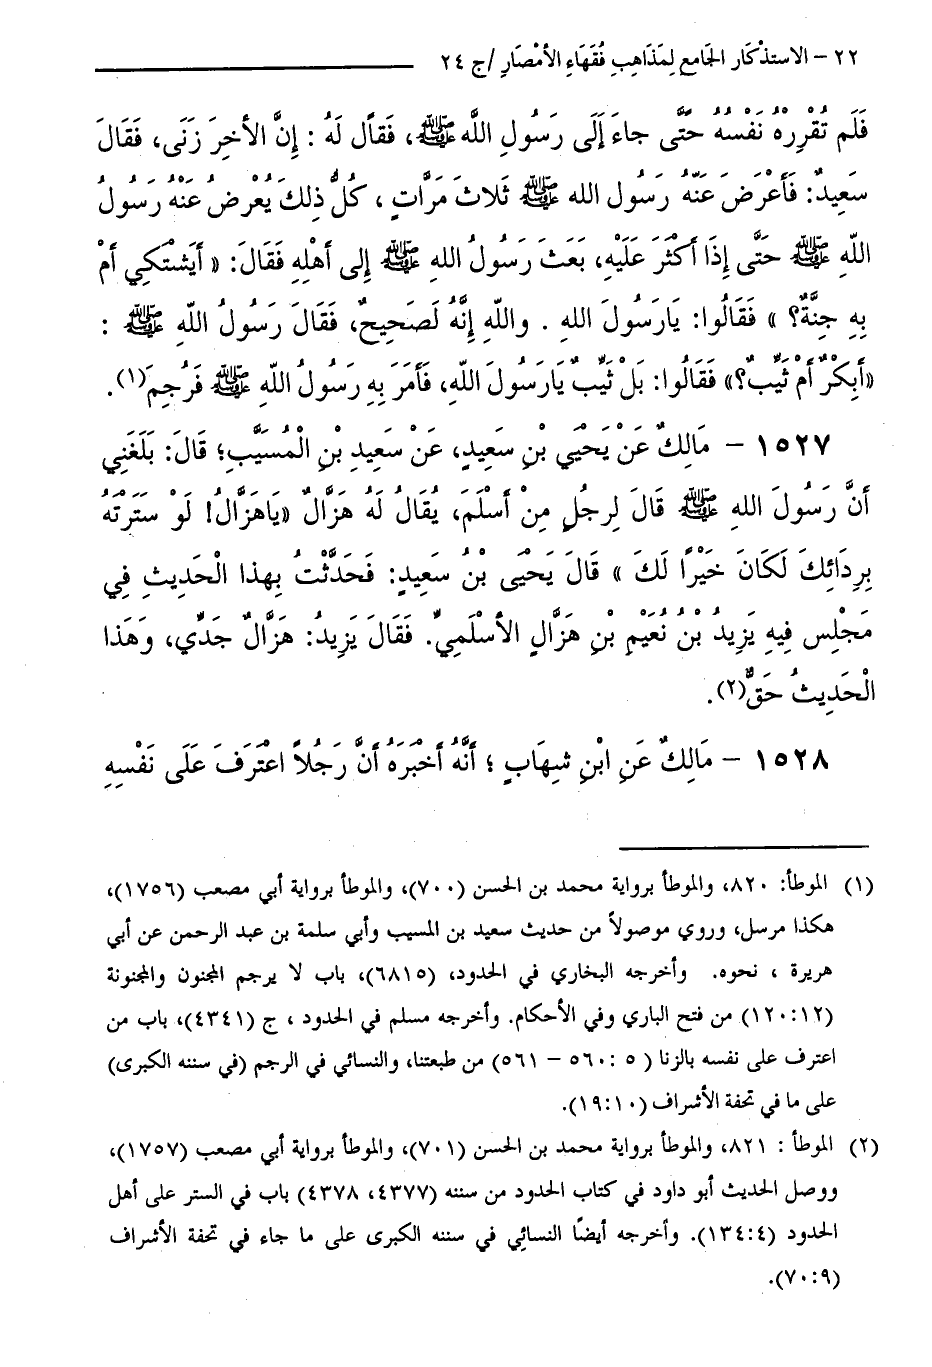 ٢٢ – الاستذْكَار الجَامع لِمَذَاهِبِ فُقَهَاءِ الأمْصَارِ /ج ٢٤
فَلَم تُقْرِرْهُ نَفْسُهُ حَتَّى جاءَ إَلَى رَسُولِ اللَّه ﷺ، فَقاَل لَهُ : إنَّ الأخِرَ زَنَى، فَقَالَ
سَعِيدٌ: فَأَعْرَضَ عَنّهُ رَسُول الله ﷺ ثَلاثَ مَرَّاتٍ ، كُلُّ ذلِكَ يُعْرِضُ عَنْهُ رَسُولُ
اللَّهِ ﷺ حَتَّى إِذَا أكْثَرَ عَلَيْهِ، بَعَثَ رَسُولُ اللهِ ﷺ إِلى أهْلِهِ فَقَالَ: « أيَشْتَكِي أمْ
بِهِ جِنَّةٌ؟ » فَقَالُوا: يَارَسُولَ اللهِ . واللّهِ إنَّهُ لَصَحِيحٌ، فَقَالَ رَسُولُ اللّهِ ﷺ :
«أبِكْرٌ أمْ ثَيِّبٌ؟» فَقَالُوا: بَلْ ثَيِّبٌ يَارَسُولَ اللّهِ، فَأمَرَ بِهِ رَسُولُ اللّهِ ﷺ فَرُجِمَ(١).
١٥٢٧ – مَالِكٌ عَنْ يَحْيَى بْنِ سَعِيدٍ، عَنْ سَعِيدِ بْنِ الْمُسَيَّبِ؛ قَالَ: بَلَغَنِي
أنَّ رَسُولَ اللهِ ﷺ قَالَ لِرجُلٍ مِنْ أسْلَمَ، يُقَالُ لَهُ هَزَّالٌ «يَاهَزَّالُ! لَوْ سَتَرْتَهُ
بِرِدَائِكَ لَكَانَ خَيْرًا لَكَ » قَالَ يَحْيَى بْنُ سَعِيدٍ: فَحَدَّثْتُ بِهذا الْحَدِيثِ فِي
مَجْلِس فِيهِ يَزِيدُ بْنُ نُعَيْمِ بْنِ هَزَّالٍ الأسْلَمِيِّ. فَقَالَ يَزِيدُ: هَزَّالٌ جَدِّي، وَهَذا
الْحَدِيثُ حَقٌّ(٢).
١٥٢٨ – مَالِكٌ عَنِ ابْنِ شِهَابٍ ؛ أنَّهُ أخْبَرَهُ أنَّ رَجُلاً اعْتَرَفَ عَلَى نَفْسِهِ
(١) الموطأ: ٨٢٠، والموطأ برواية محمد بن الحسن (٧٠٠)، والموطأ برواية أبي مصعب (١٧٥٦)،
هكذا مرسل، وروي موصولاً من حديث سعيد بن المسيب وأبي سلمة بن عبد الرحمن عن أبي
هريرة ، نحوه. وأخرجه البخاري في الحدود، (٦٨١٥)، باب لا يرجم المجنون والمجنونة
(١٢٠:١٢) من فتح الباري وفي الأحكام. وأخرجه مسلم في الحدود ، ح (٤٣٤١)، باب من
اعترف على نفسه بالزنا ( ٥ :٥٦٠ – ٥٦١) من طبعتنا، والنسائي في الرجم (في سننه الكبرى)
على ما في تحفة الأشراف (١٩:١٠).
(٢) الموطأ : ٨٢١، والموطأ برواية محمد بن الحسن (٧٠١)، والموطأ برواية أبي مصعب (١٧٥٧)،
ووصل الحديث أبو داود في كتاب الحدود من سننه (٤٣٧٧، ٤٣٧٨) باب في الستر على أهل
الحدود (١٣٤:٤). وأخرجه أيضًا النسائي في سننه الكبرى على ما جاء في تحفة الأشراف
(٧٠:٩).